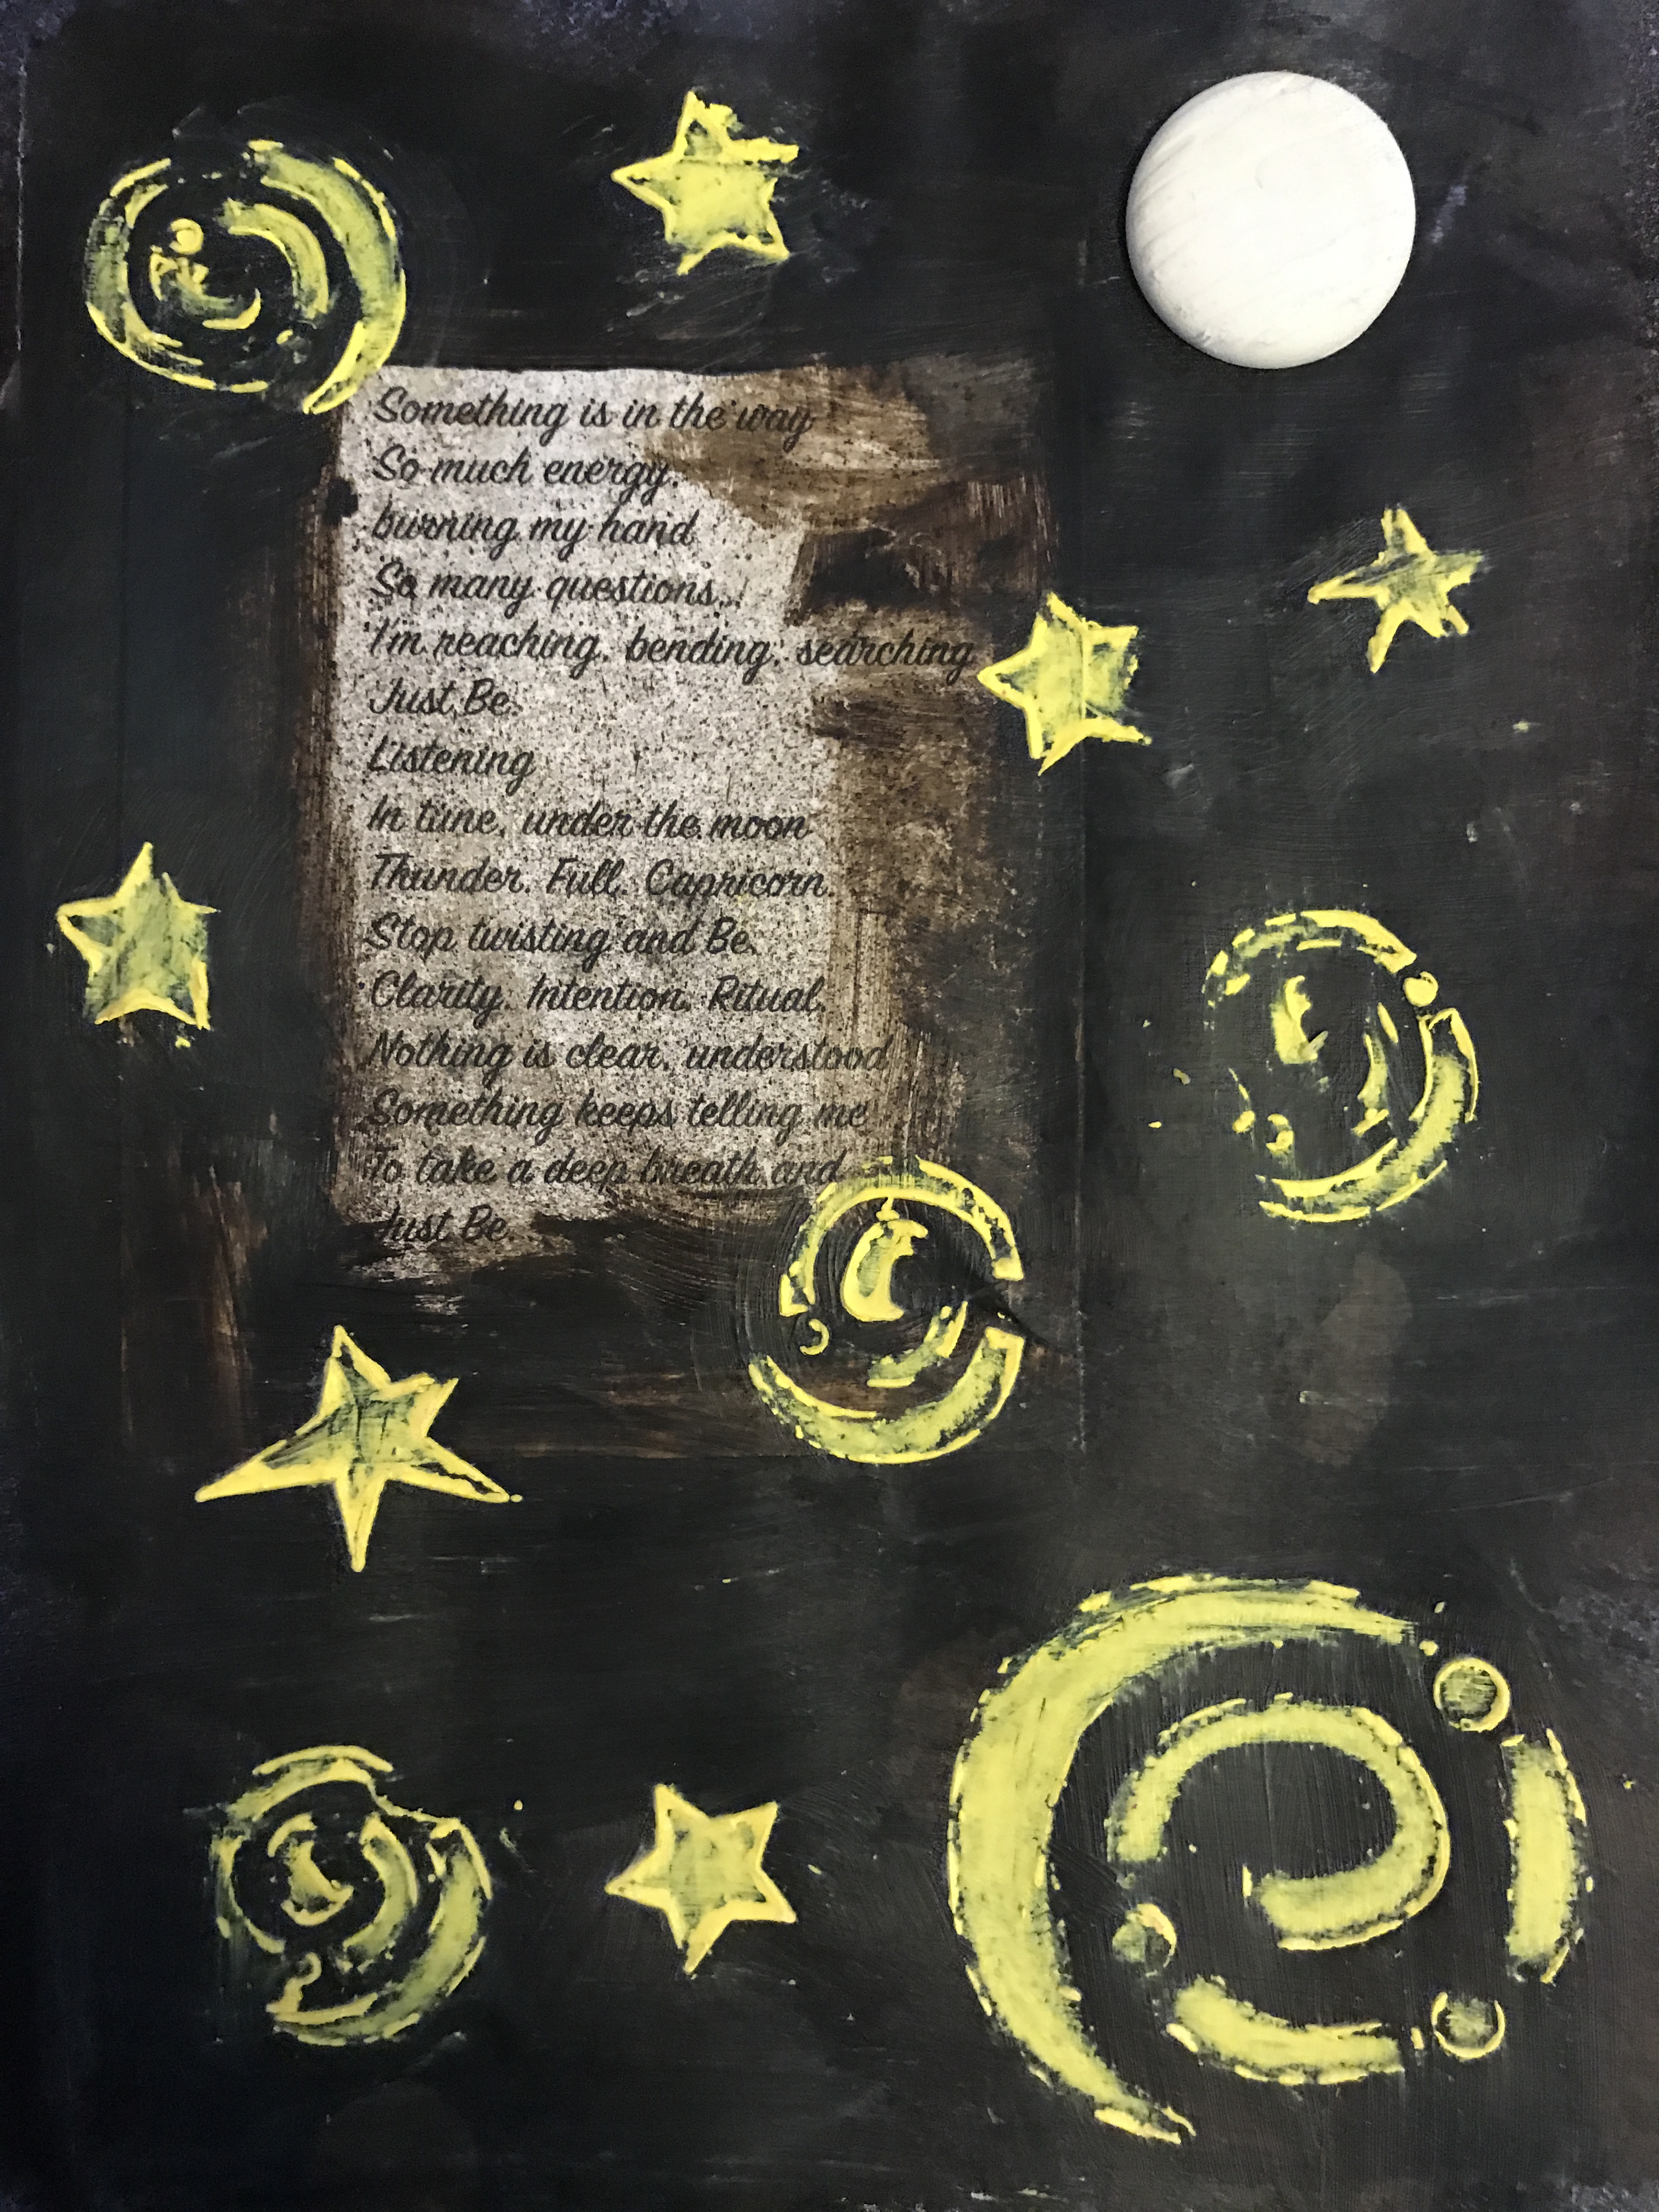 Something is in the way
So much energy.
burning my hand
So many questions...
I'm reaching, bending, searching
Just Be.
Listening
In tune, under the moon
Thunder. Full. Capricorn.
Stop twisting and Be.
Clarity. Intention. Ritual.
Nothing is clear, understood
Something keeps telling me
To take a deep breath and
Just Be.